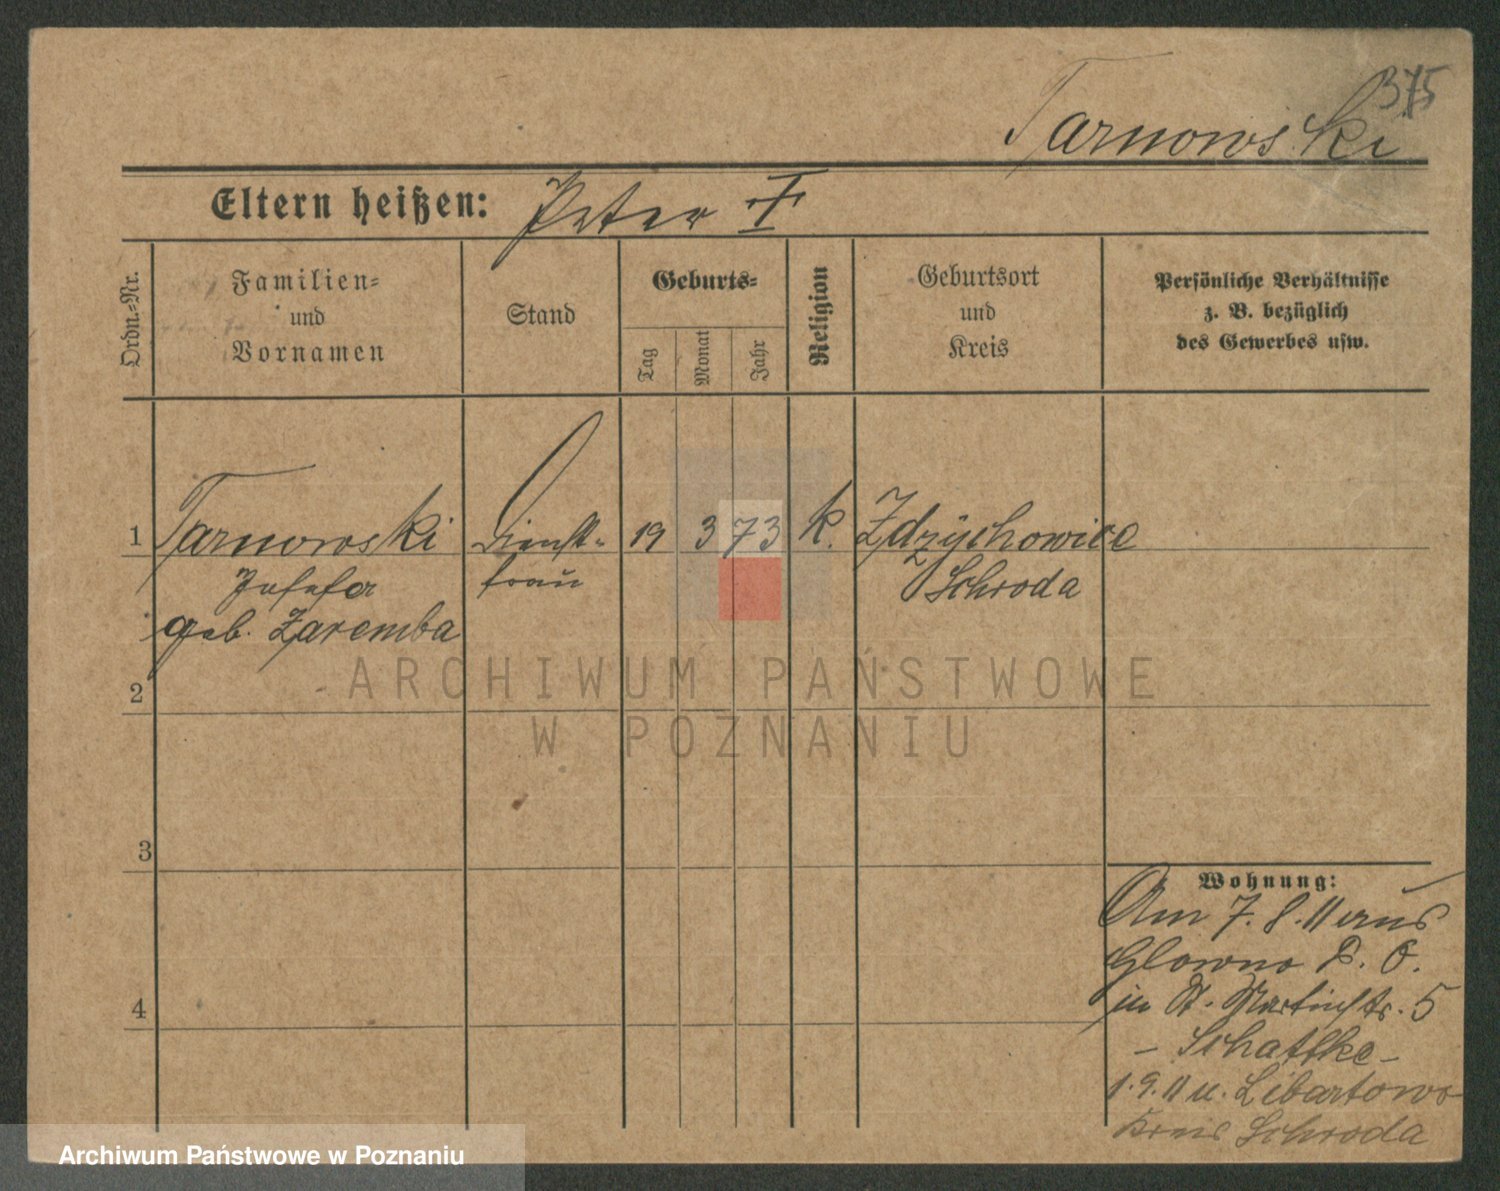 375
Tarnowski
Eltern heißen: Peter F
Ordn.-Nr.
Familien-
und
Vornamen
Stand
Geburts-
Tag
Monat
Jahr
Religion
Geburtsort
und
Kreis
Persönliche Verhältnisse
z. B. bezüglich
des Gewerbes usw.
1 Tarnowski Dienst- 19 3 73 k. Zdzychowice
Josefa frau Schroda
geb. Zaremba
2
3
4
Wohnung:
Am 7.8.11 aus
Glowno P. O.
in St. Martinstr. 5
- Schattke -
1.9.11 n. Libartowo
Kreis Schroda
ARCHIWUM PAŃSTWOWE
W POZNANIU
Archiwum Państwowe w Poznaniu